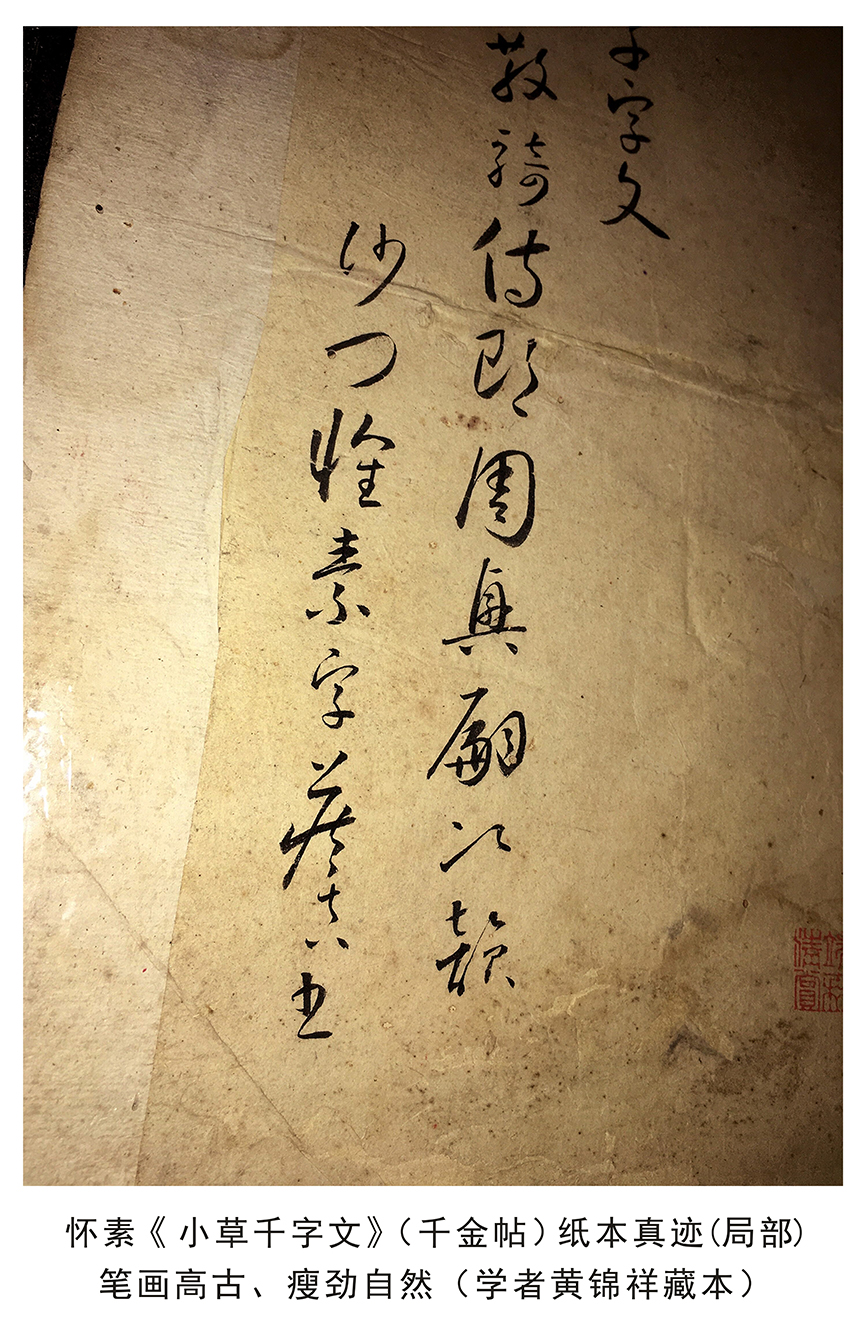 千字文
散騎侍郎周興嗣次韻
沙門懷素字藏真書
怀素《小草千字文》（千金帖）纸本真迹(局部)
笔画高古、瘦劲自然（学者黄锦祥藏本）